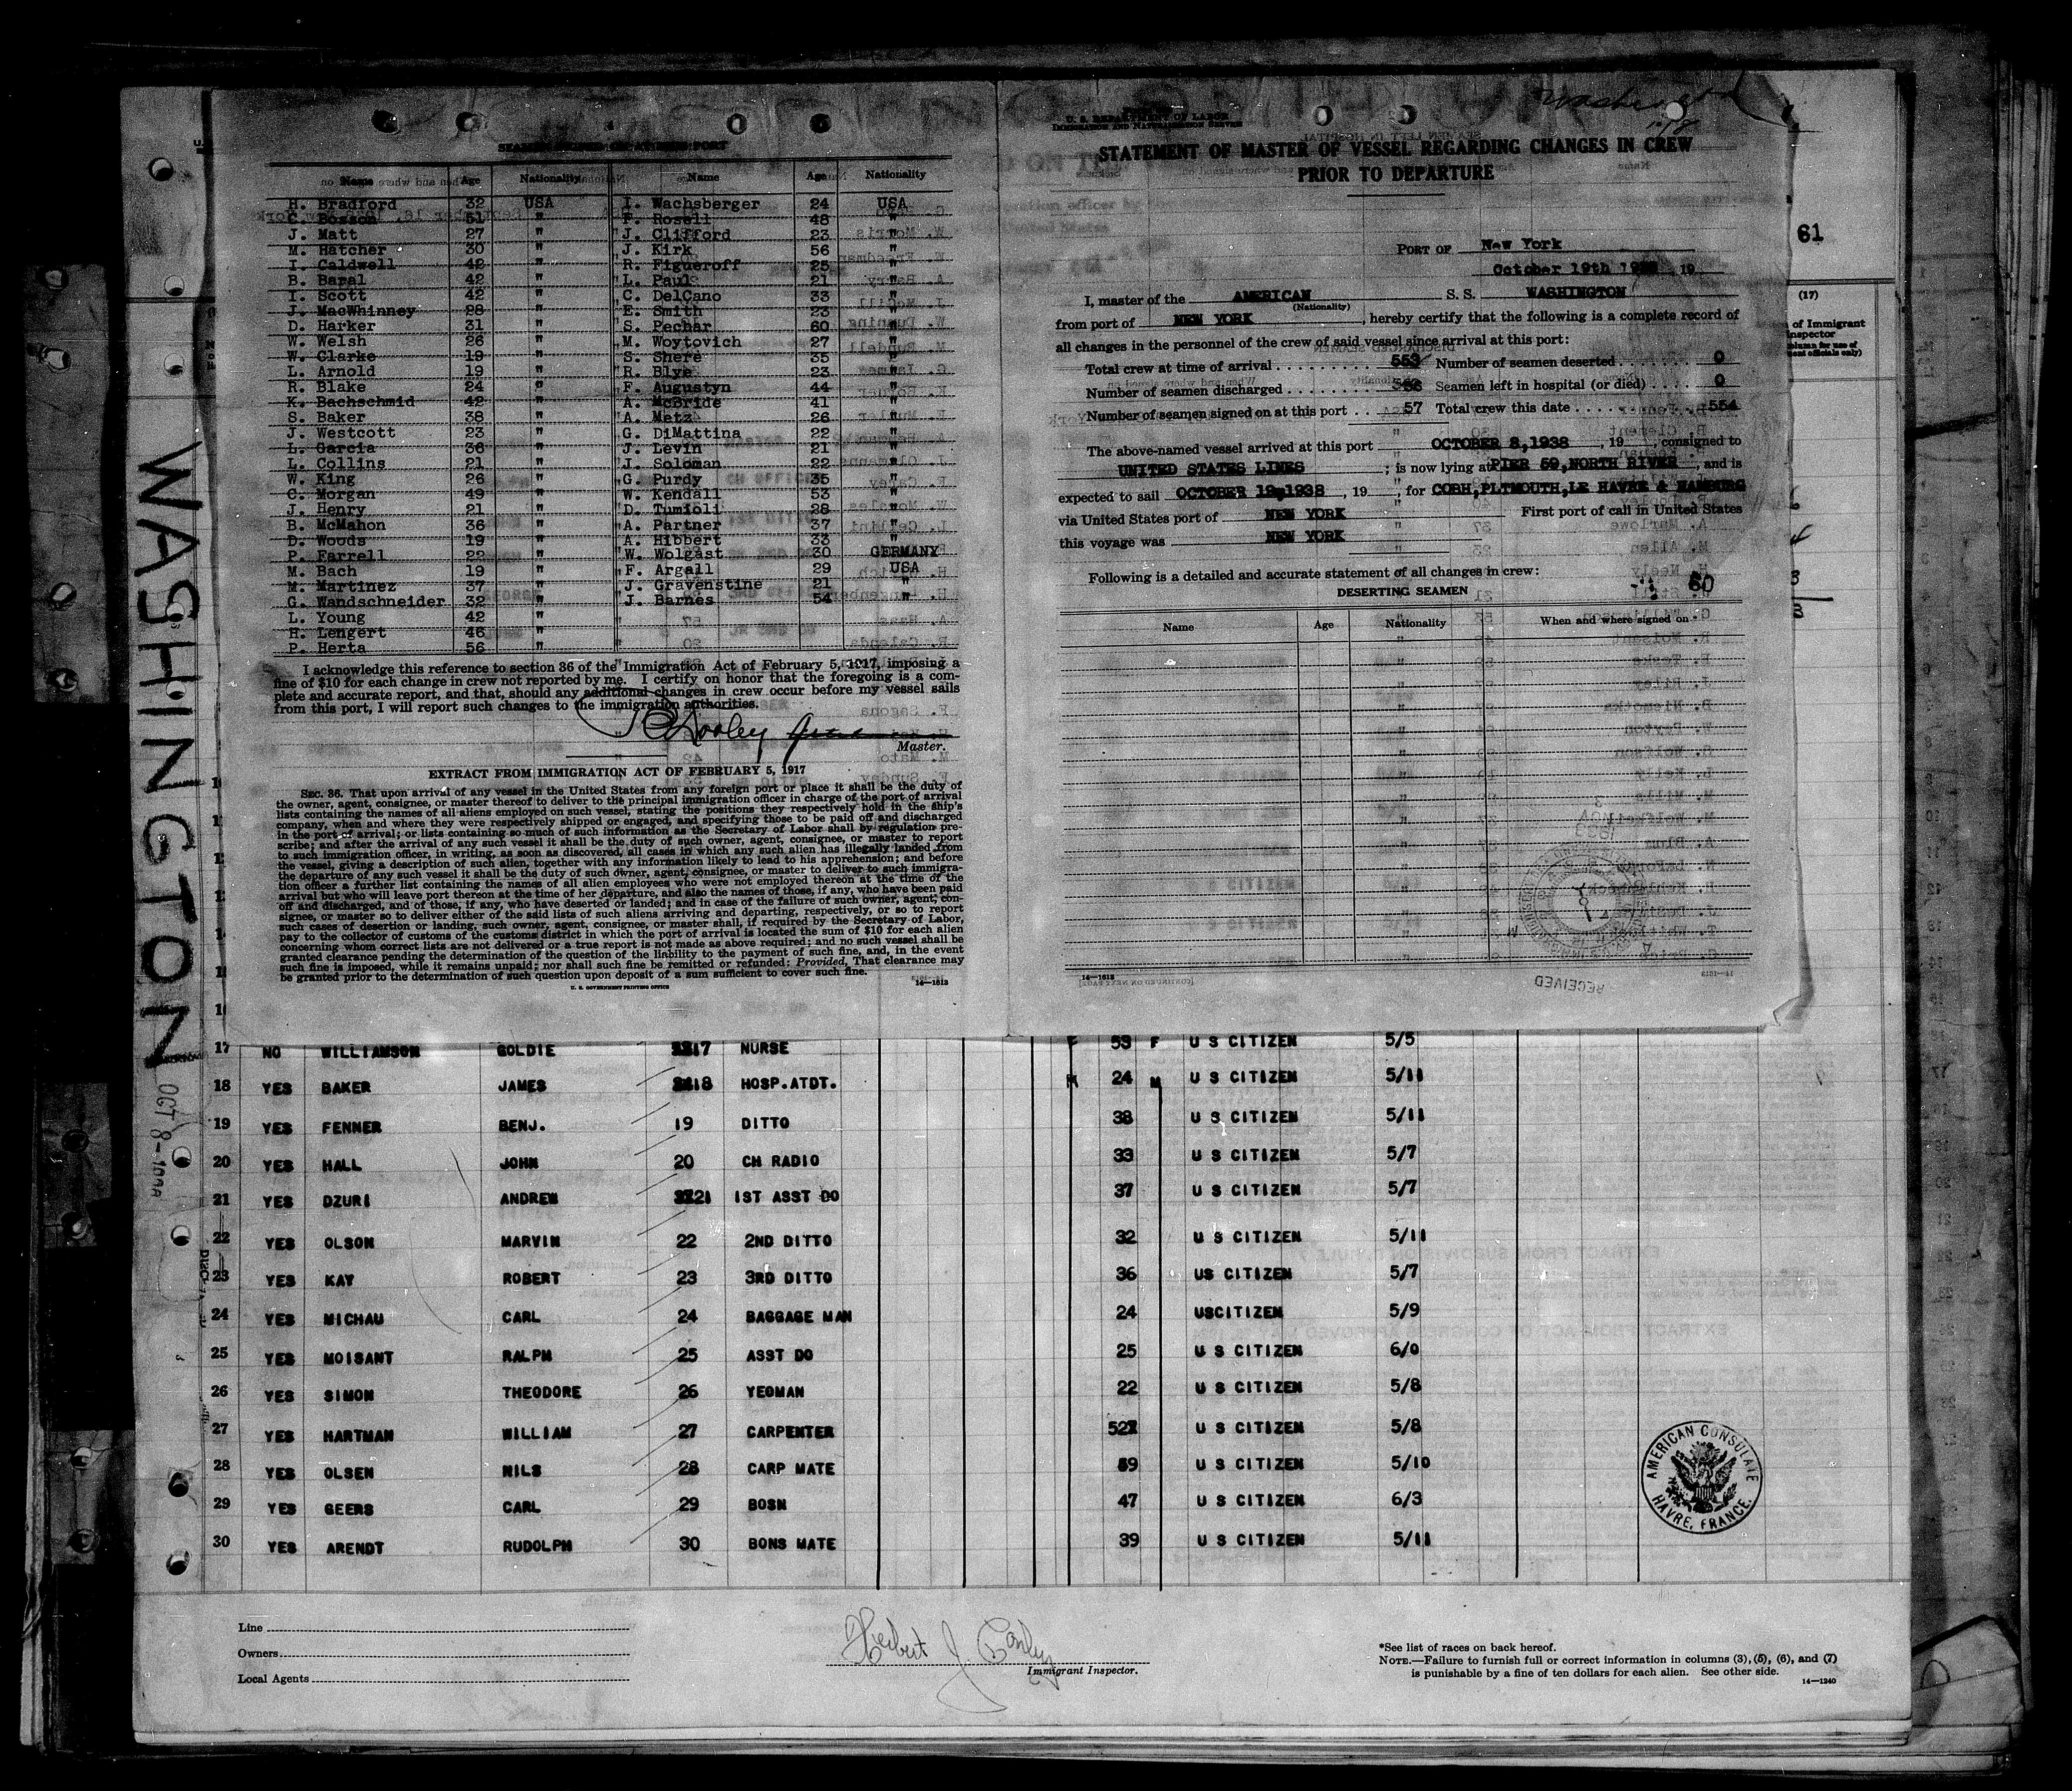 WASHINGTON
OCT 8-
SEAMEN SIGNED ON AT THIS PORT
Name Age Nationality Name Age Nationality
H. Bradford 32 USA I. Wachsberger 24 USA
C. Bosson 51 " F. Rosell 48 "
J. Matt 27 " J. Clifford 23 "
M. Hatcher 30 " J. Kirk 56 "
I. Caldwell 42 " R. Figueroff 25 "
B. Baral 42 " L. Paul 21 "
I. Scott 42 " C. DelCano 33 "
J. MacWhinney 28 " E. Smith 23 "
D. Harker 31 " S. Pechar 60 "
W. Welsh 26 " M. Woytovich 27 "
W. Clarke 19 " S. Shere 35 "
L. Arnold 19 " R. Blye 23 "
R. Blake 24 " F. Augustyn 44 "
K. Bachschmid 42 " A. McBride 41 "
S. Baker 38 " A. Metz 26 "
J. Westcott 23 " G. DiMattina 22 "
L. Garcia 36 " J. Levin 21 "
L. Collins 21 " J. Soloman 22 "
W. King 26 " G. Purdy 35 "
C. Morgan 49 " W. Kendall 53 "
J. Henry 21 " D. Tumioli 28 "
B. McMahon 36 " A. Partner 37 "
D. Woods 19 " A. Hibbert 33 "
P. Farrell 22 " W. Wolgast 30 GERMANY
M. Bach 19 " F. Argall 29 USA
M. Martinez 37 " J. Gravenstine 21 "
G. Wandschneider 32 " J. Barnes 54 "
L. Young 42 "
H. Lengert 46 "
P. Herta 56 "
I acknowledge this reference to section 36 of the Immigration Act of February 5, 1917, imposing a
fine of $10 for each change in crew not reported by me. I certify on honor that the foregoing is a com-
plete and accurate report, and that, should any additional changes in crew occur before my vessel sails
from this port, I will report such changes to the immigration authorities.
Master.
EXTRACT FROM IMMIGRATION ACT OF FEBRUARY 5, 1917
SEC. 36. That upon arrival of any vessel in the United States from any foreign port or place it shall be the duty of
the owner, agent, consignee, or master thereof to deliver to the principal immigration officer in charge of the port of arrival
lists containing the names of all aliens employed on such vessel, stating the positions they respectively hold in the ship's
company, when and where they were respectively shipped or engaged, and specifying those to be paid off and discharged
in the port of arrival; or lists containing so much of such information as the Secretary of Labor shall by regulation pre-
scribe; and after the arrival of any such vessel it shall be the duty of such owner, agent, consignee, or master to report
to such immigration officer, in writing, as soon as discovered, all cases in which any such alien has illegally landed from
the vessel, giving a description of such alien, together with any information likely to lead to his apprehension; and before
the departure of any such vessel it shall be the duty of such owner, agent, consignee, or master to deliver to such immigra-
tion officer a further list containing the names of all alien employees who were not employed thereon at the time of the
arrival but who will leave port thereon at the time of her departure, and also the names of those, if any, who have been paid
off and discharged, and of those, if any, who have deserted or landed; and in case of the failure of such owner, agent, con-
signee, or master so to deliver either of the said lists of such aliens arriving and departing, respectively, or so to report
such cases of desertion or landing, such owner, agent, consignee, or master shall, if required by the Secretary of Labor,
pay to the collector of customs of the customs district in which the port of arrival is located the sum of $10 for each alien
concerning whom correct lists are not delivered or a true report is not made as above required; and no such vessel shall be
granted clearance pending the determination of the question of the liability to the payment of such fine, and, in the event
such fine is imposed, while it remains unpaid; nor shall such fine be remitted or refunded: Provided, That clearance may
be granted prior to the determination of such question upon deposit of a sum sufficient to cover such fine.
U. S. GOVERNMENT PRINTING OFFICE 14—1613
Washington
U. S. DEPARTMENT OF LABOR
IMMIGRATION AND NATURALIZATION SERVICE
STATEMENT OF MASTER OF VESSEL REGARDING CHANGES IN CREW
PRIOR TO DEPARTURE
PORT OF New York
October 19th 19
I, master of the AMERICAN S. S. WASHINGTON
(Nationality)
from port of NEW YORK, hereby certify that the following is a complete record of
all changes in the personnel of the crew of said vessel since arrival at this port:
Total crew at time of arrival 553 Number of seamen deserted 0
Number of seamen discharged Seamen left in hospital (or died) 0
Number of seamen signed on at this port 57 Total crew this date 554
The above-named vessel arrived at this port OCTOBER 8,1938, 19, consigned to
UNITED STATES LINES; is now lying at PIER 59,NORTH RIVER, and is
expected to sail OCTOBER 19,1938, 19, for COBH,PLTMOUTH,LE HAVRE & HAMBURG
via United States port of NEW YORK First port of call in United States
this voyage was NEW YORK
Following is a detailed and accurate statement of all changes in crew:
60
DESERTING SEAMEN
Name Age Nationality When and where signed on
14—1613
RECEIVED
61
(17)
of Immigrant
Inspector
17 NO WILLIAMSON GOLDIE 17 NURSE F 53 F U S CITIZEN 5/5
18 YES BAKER JAMES 18 HOSP.ATDT. M 24 M U S CITIZEN 5/11
19 YES FENNER BENJ. 19 DITTO 38 U S CITIZEN 5/11
20 YES HALL JOHN 20 CH RADIO 33 U S CITIZEN 5/7
21 YES DZURI ANDREW 21 1ST ASST DO 37 U S CITIZEN 5/7
22 YES OLSON MARVIN 22 2ND DITTO 32 U S CITIZEN 5/11
23 YES KAY ROBERT 23 3RD DITTO 36 US CITIZEN 5/7
24 YES MICHAU CARL 24 BAGGAGE MAN 24 USCITIZEN 5/9
25 YES MOISANT RALPH 25 ASST DO 25 U S CITIZEN 6/0
26 YES SIMON THEODORE 26 YEOMAN 22 U S CITIZEN 5/8
27 YES HARTMAN WILLIAM 27 CARPENTER 52 U S CITIZEN 5/8
28 YES OLSEN NILS 28 CARP MATE 59 U S CITIZEN 5/10
29 YES GEERS CARL 29 BOSN 47 U S CITIZEN 6/3
30 YES ARENDT RUDOLPH 30 BONS MATE 39 U S CITIZEN 5/11
AMERICAN CONSULATE
HAVRE, FRANCE.
Line
Owners
Local Agents
Herbert J
Immigrant Inspector.
*See list of races on back hereof.
NOTE.—Failure to furnish full or correct information in columns (3), (5), (6), and (7)
is punishable by a fine of ten dollars for each alien. See other side.
14—1240